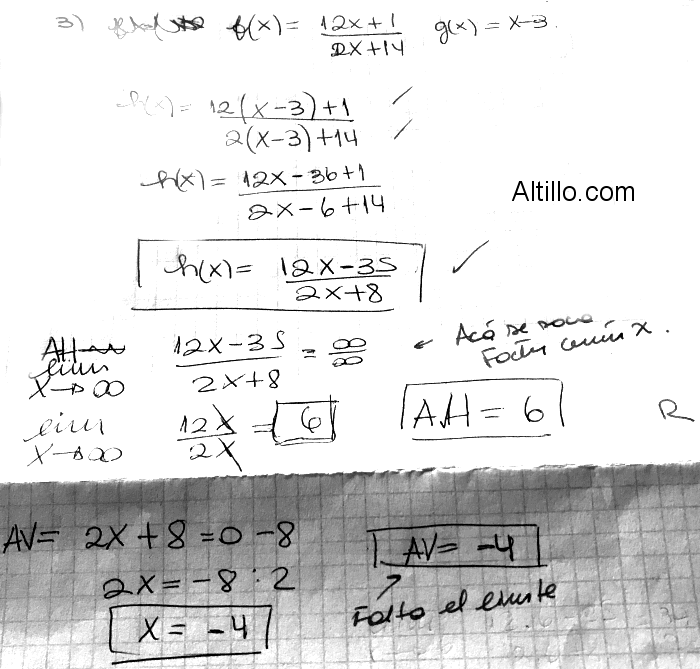 3) f(x) = 12x+1 / 2x+14 g(x) = x-3
h(x) = 12(x-3)+1 / 2(x-3)+14
h(x) = 12x-36+1 / 2x-6+14
Altillo.com
h(x) = 12x-35 / 2x+8
AH
lim x→∞ 12x-35 / 2x+8 = ∞/∞ ← Acá se saca
Factor común x.
lim x→∞ 12x / 2x = 6 AH = 6 R
AV= 2x+8=0-8 AV= -4
2x=-8:2
Falto el límite
x= -4